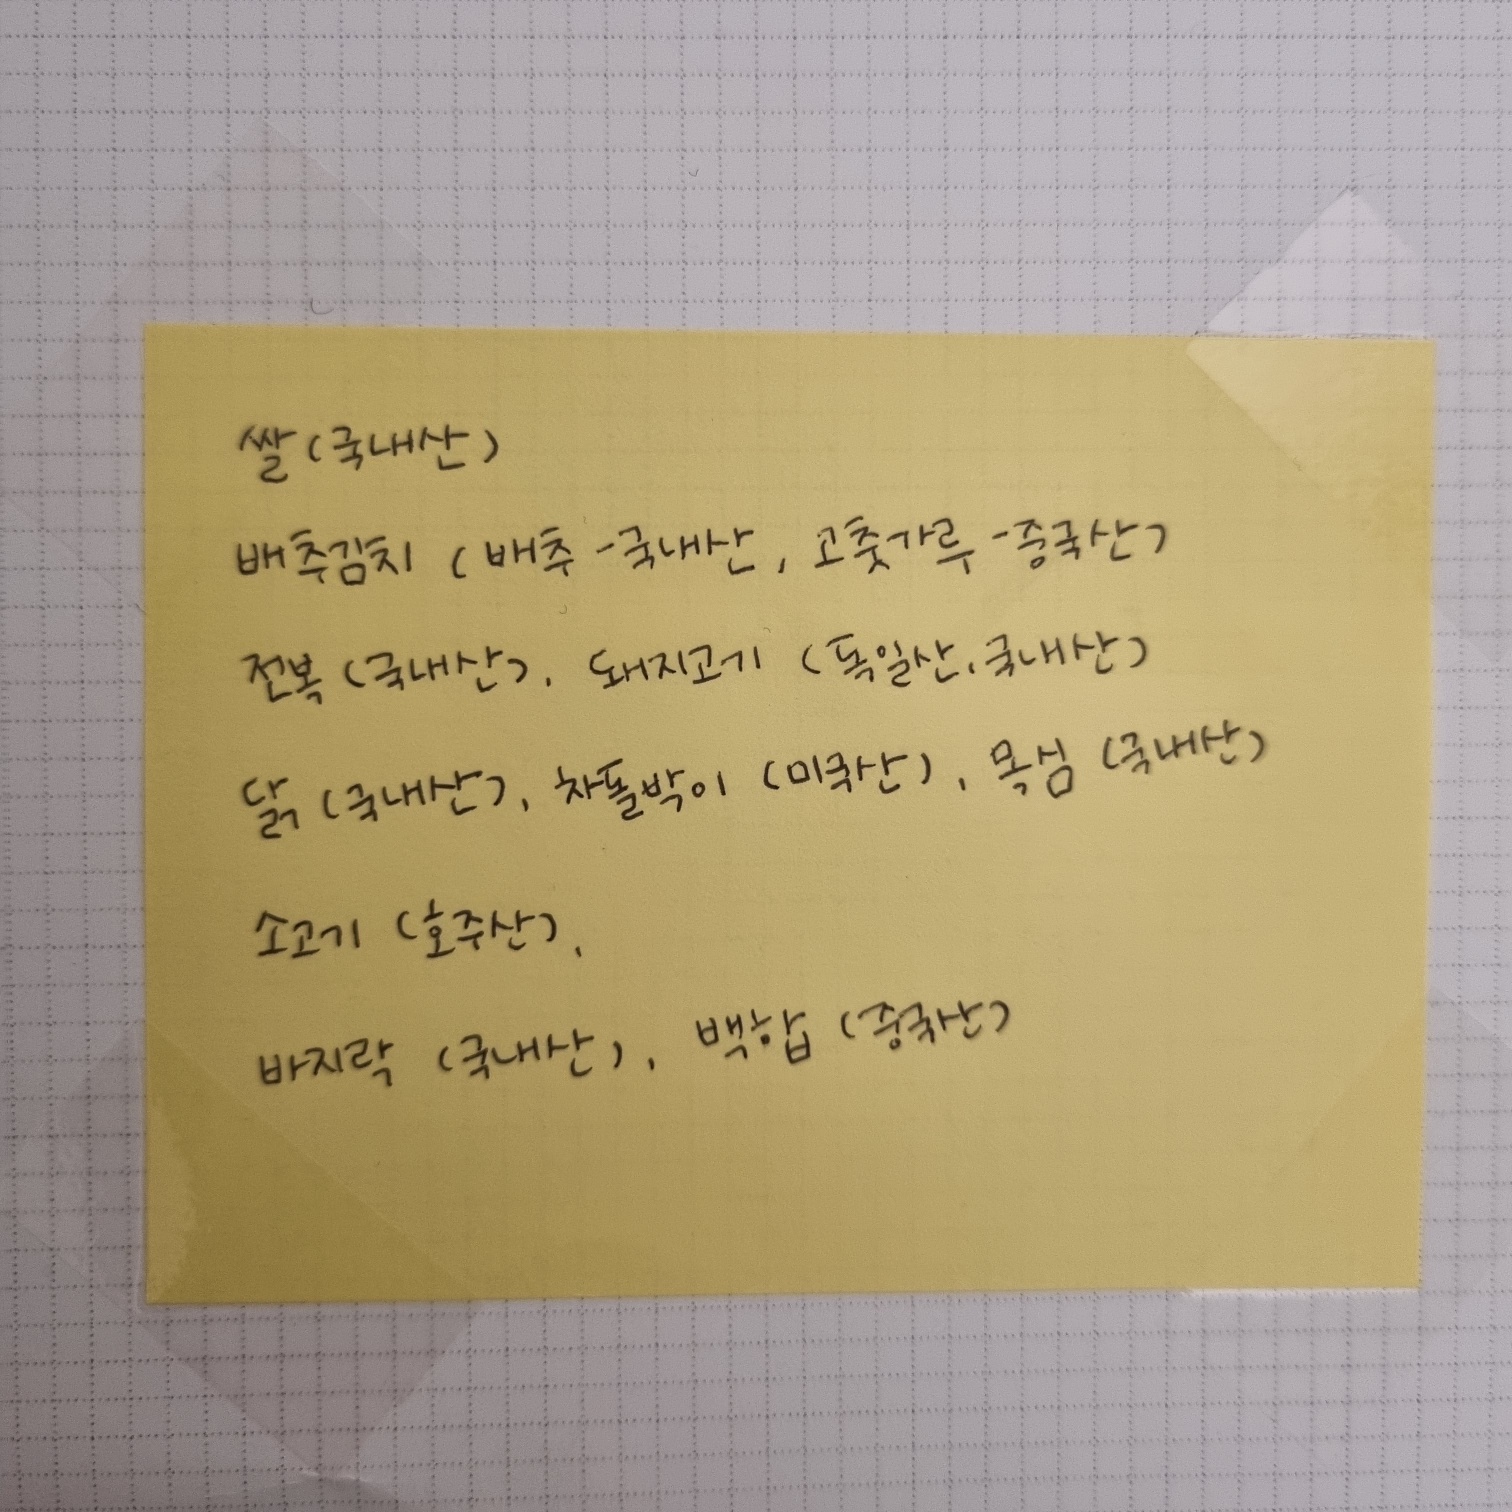 쌀(국내산)
배추김치 (배추-국내산, 고춧가루-중국산)
전복(국내산), 돼지고기 (독일산,국내산)
닭(국내산), 차돌박이 (미국산), 목심 (국내산)
소고기 (호주산),
바지락 (국내산), 백합 (중국산)